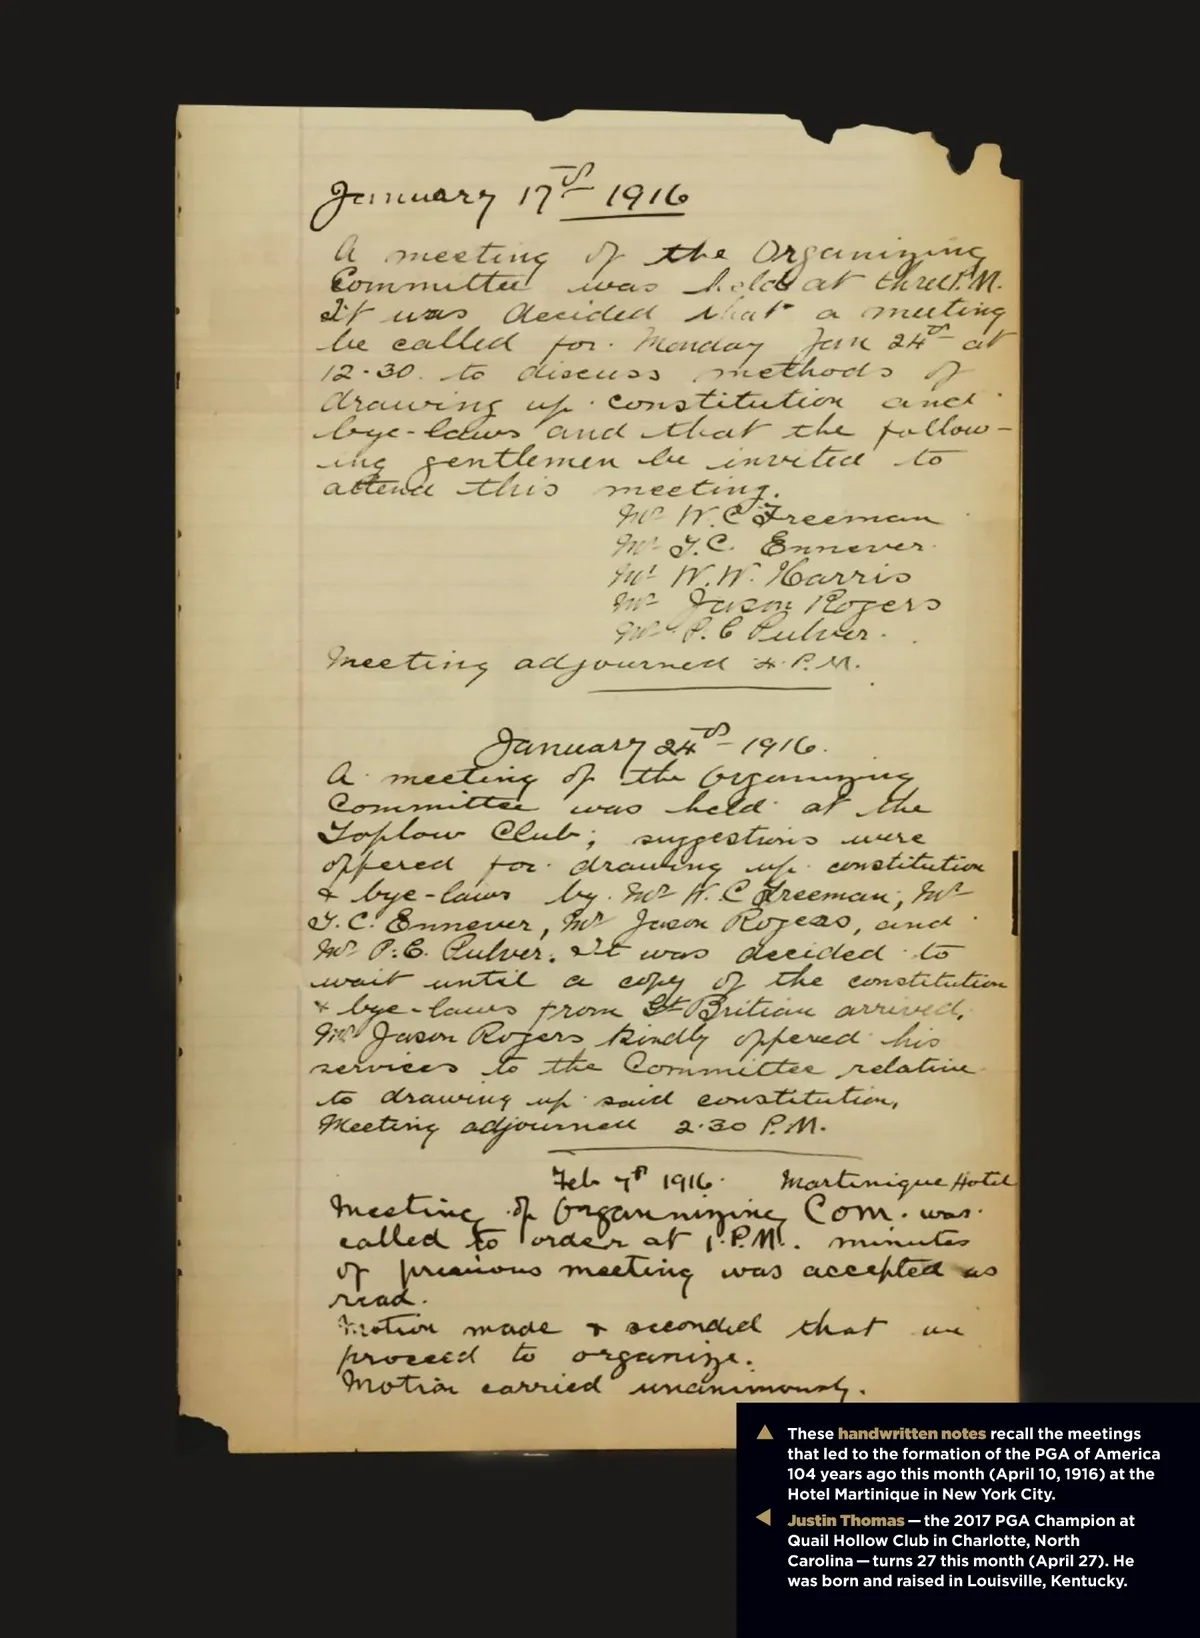 January 17th 1916
A meeting of the Organizing
Committee was held at three P.M.
It was decided that a meeting
be called for Monday Jan 24th at
12.30. to discuss methods of
drawing up constitution and
bye-laws and that the follow-
ing gentlemen be invited to
attend this meeting.
Mr W. C Freeman
Mr T. C. Ennever.
Mr W. W. Harris
Mr Jason Rogers
Mr P. C Pulver.
Meeting adjourned 4. P.M.
January 24th 1916.
A meeting of the Organizing
Committee was held at the
Toplow Club; suggestions were
offered for drawing up constitution
& bye-laws by Mr W. C Freeman, Mr
T. C. Ennever, Mr Jason Rogers, and
Mr P. C. Pulver. It was decided to
wait until a copy of the constitution
& bye-laws from Gt Britian arrived.
Mr Jason Rogers kindly offered his
services to the Committee relative
to drawing up said constitution.
Meeting adjourned 2.30 P.M.
Feb 7th 1916. Martinique Hotel
Meeting of Organnizing Com. was
called to order at 1. P.M. minutes
of previous meeting was accepted as
read.
Motion made & seconded that we
proceed to organize.
Motion carried unanimously.
▲ These handwritten notes recall the meetings
that led to the formation of the PGA of America
104 years ago this month (April 10, 1916) at the
Hotel Martinique in New York City.
◀ Justin Thomas — the 2017 PGA Champion at
Quail Hollow Club in Charlotte, North
Carolina — turns 27 this month (April 27). He
was born and raised in Louisville, Kentucky.